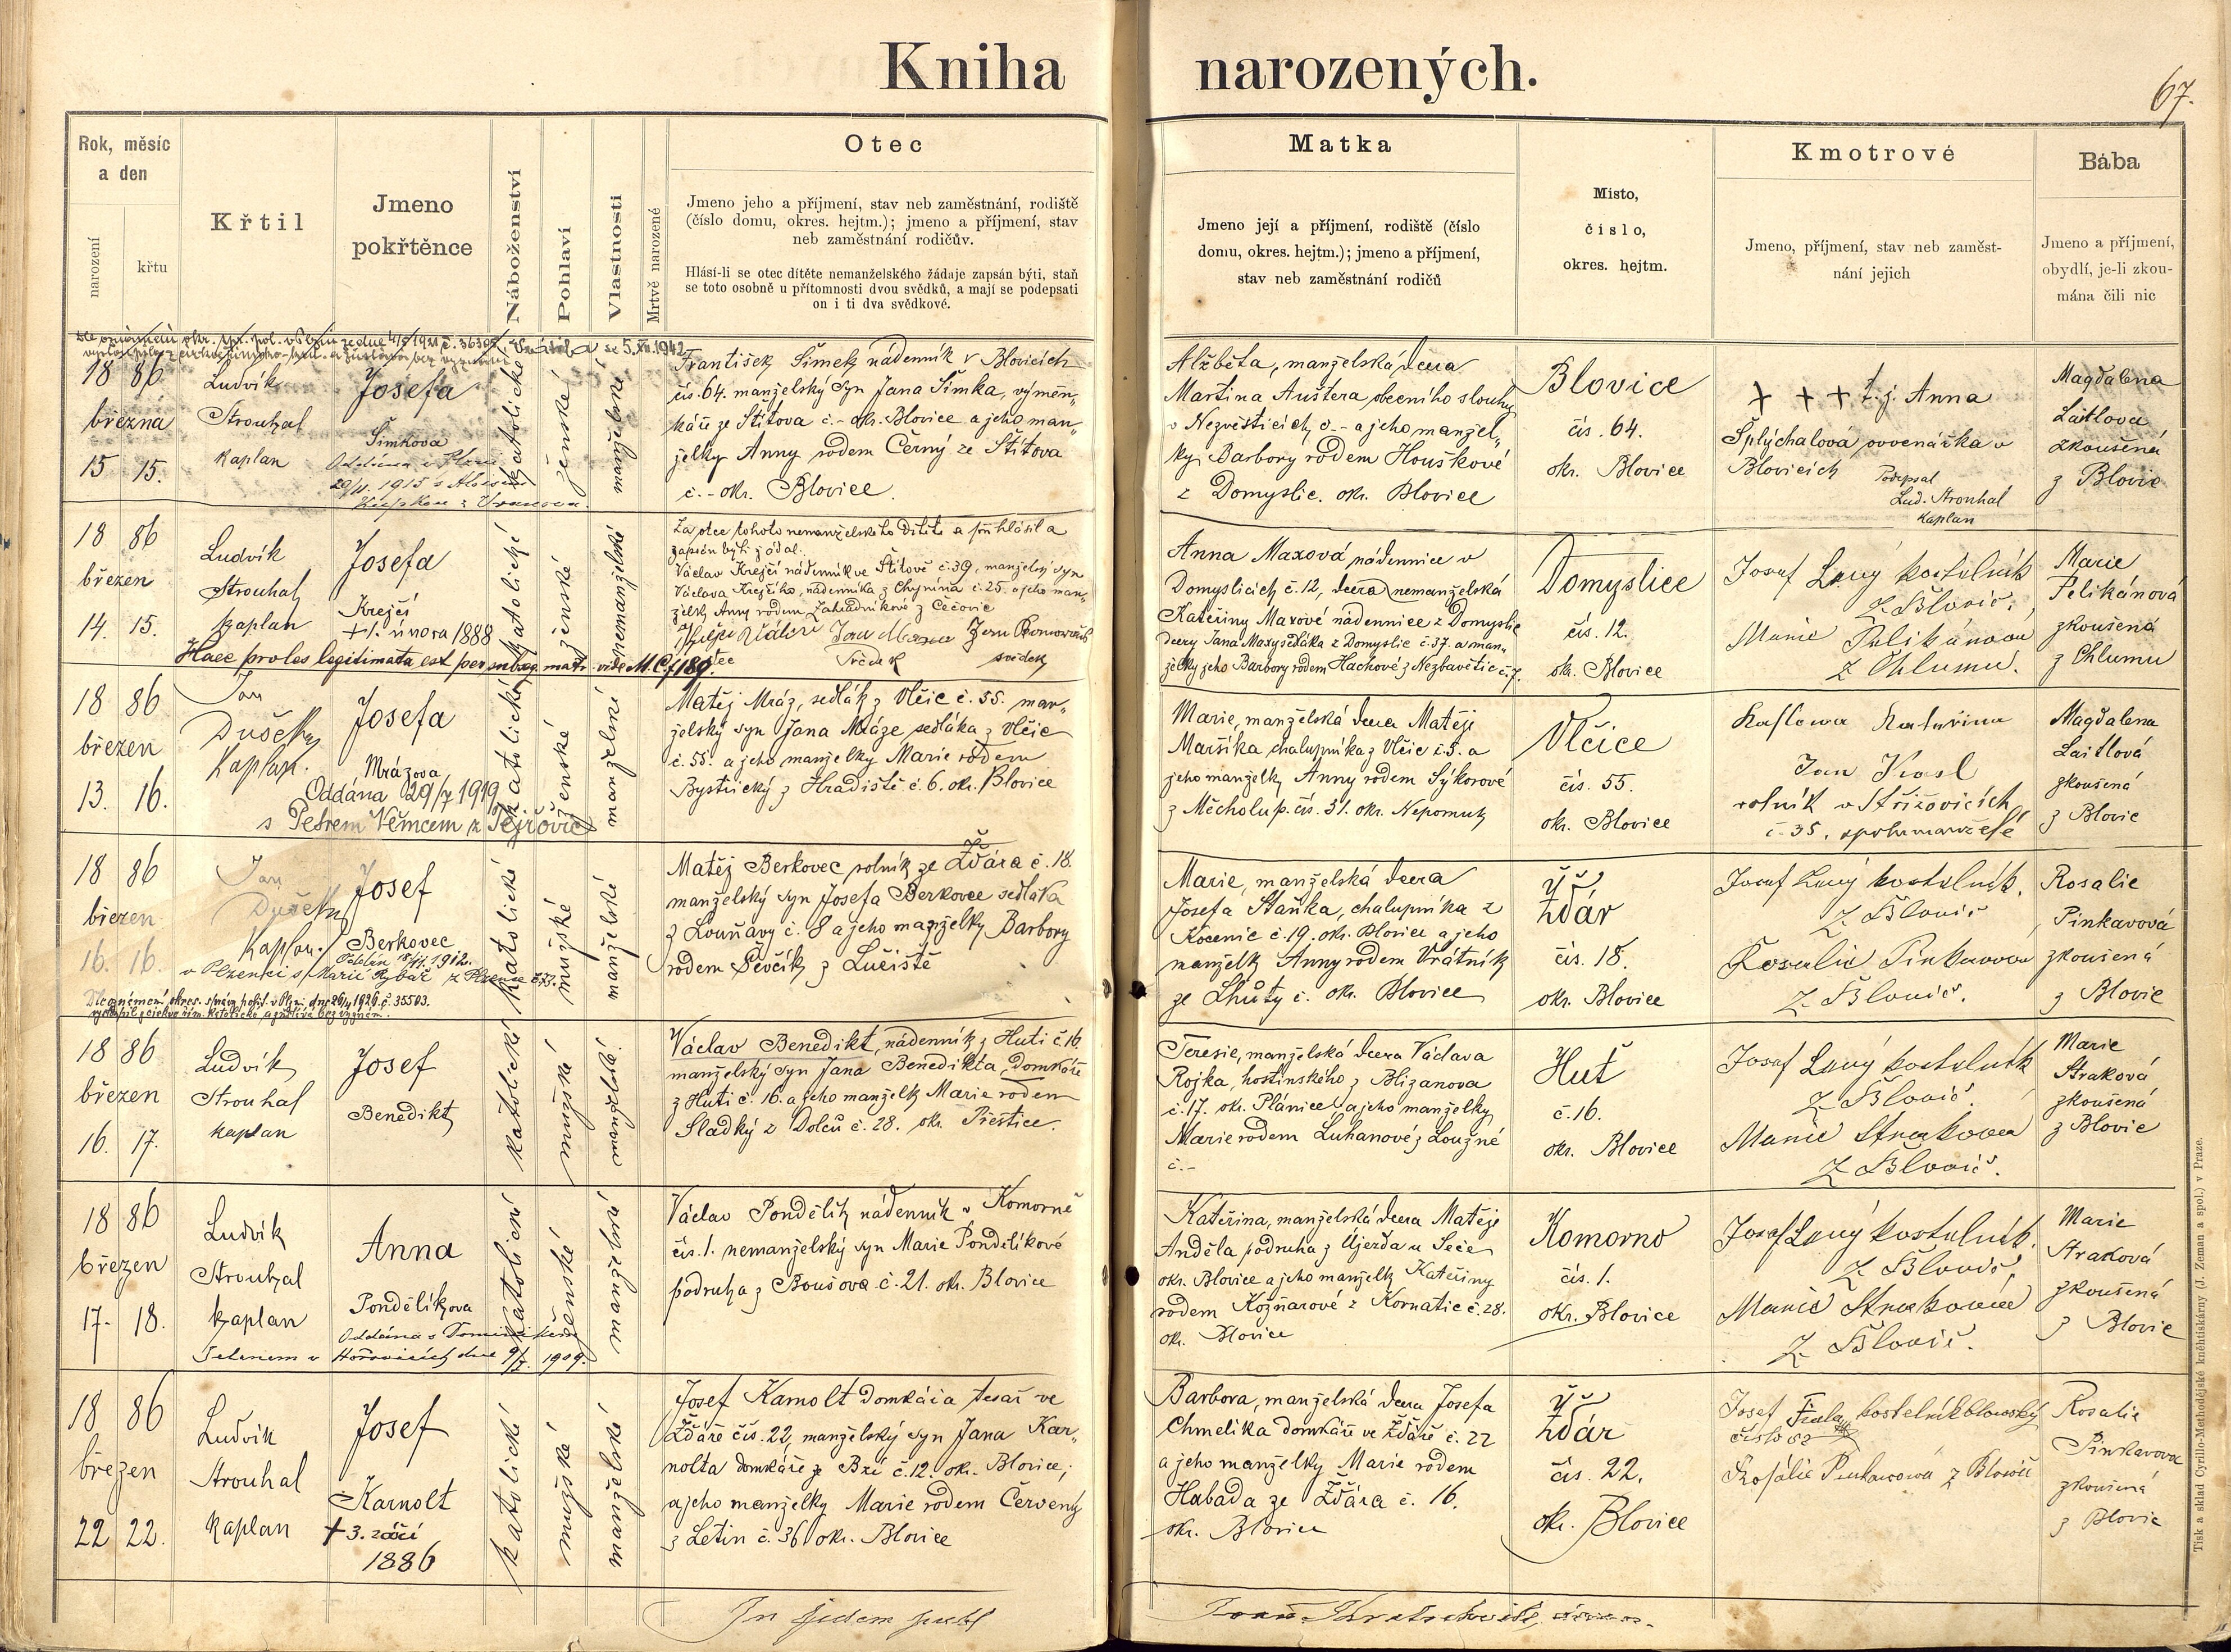 Kniha narozených.
67.
Rok, měsíc
a den
narození
křtu
Křtil
Jmeno
pokřtěnce
Náboženství
Pohlaví
Vlastnosti
Mrtvě narozené
Otec
Jmeno jeho a příjmení, stav neb zaměstnání, rodiště
(číslo domu, okres. hejtm.); jmeno a příjmení, stav
neb zaměstnání rodičův.
Hlásí-li se otec dítěte nemanželského žádaje zapsán býti, staň
se toto osobně u přítomnosti dvou svědků, a mají se podepsati
on i ti dva svědkové.
Matka
Jmeno její a příjmení, rodiště (číslo
domu, okres. hejtm.); jmeno a příjmení,
stav neb zaměstnání rodičů
Misto,
číslo,
okres. hejtm.
Kmotrové
Jmeno, příjmení, stav neb zaměst-
nání jejich
Bába
Jmeno a příjmení,
obydlí, je-li zkou-
mána čili nic
18 86
března
15 15.
Ludvík
Strouhal
kaplan
Josefa
Šimkova
katolické
ženské
manželské
František Šimek nádenník v Blovicích
čís. 64. manželský syn Jana Šimka, výměn„
káře ze Štítova č.- okr. Blovice a jeho man„
želky Anny rodem Černý ze Štítova
č.- okr. Blovice.
Alžběta, manželská dcera
Martina Auštera obecního slouhy
v Nezvěsticích, č.- a jeho manžel„
ky Barbory rodem Houškové
z Domyslic. okr. Blovice
Blovice
čís. 64.
okr. Blovice
+ + + t. j. Anna
Šplýchalová ovvenáčka v
Blovicích
Podepsal
Lud. Strouhal
kaplan
Magdalena
Laitlova
zkoušená
z Blovic
18 86
březen
14. 15.
Ludvík
Strouhal
kaplan
Josefa
Krejčí
+ 1. února 1888
Haec proles legitimata est per subseq. matr. vide M. C. f 189.
katolické
ženské
nemanželské
Za otce tohoto nemanželského dítěte se přihlásil a
zapsán býti žádal.
Václav Krejčí nádenník ve Štítově č. 39. manželský syn
Václava Krejčího, nádenníka z Chynína č. 25. a jeho man„
želky Anny rodem Zahradníkové z Čečovic
svědek
svědek
Anna Maxová nádennice v
Domyslicích č. 12, dcera nemanželská
Kateřiny Maxové nádennice z Domyslic
dcery Jana Maxy sedláka z Domyslic č. 37. a man„
želky jeho Barbory rodem Hachové z Nezbavětic č. 7.
Domyslice
čís. 12.
okr. Blovice
Josef Lený kostelník
z Blovic.
Marie Pelikánova
z Chlumu.
Marie
Pelikánová
zkoušená
z Chlumu
18 86
březen
13. 16.
Jan
Dušek
Kaplan.
Josefa
Mrázova
Oddána 29/7 1919
s Petrem Němcem z Pejřovic
katolické
ženské
manželské
Matěj Mráz, sedlák z Vlčic č. 55. man„
želský syn Jana Mráze sedláka z Vlčic
č. 55. a jeho manželky Marie rodem
Bystřický z Hradiště č. 6. okr. Blovice
Marie, manželská dcera Matěje
Maršíka chalupníka z Vlčic č. 5. a
jeho manželky Anny rodem Sýkorové
z Měcholup čís. 31. okr. Nepomuk
Vlčice
čís. 55.
okr. Blovice
Kaslowa Kateřina
Jan Kasl
rolník v Střížovicích
č. 35. spolu manželé
Magdalena
Laitlová
zkoušená
z Blovic
18 86
březen
16. 16.
Jan
Dušek
Kaplan.
Josef
Berkovec
v Plzenci s Marií Rybář z Plzence č. 73.
katolické
mužské
manželské
Matěj Berkovec rolník ze Žďára č. 18.
manželský syn Josefa Berkovce sedláka
z Louňavy č. 8 a jeho manželky Barbory
rodem Ševčík z Lučiště
Marie, manželská dcera
Josefa Staňka, chalupníka z
Kocenic č. 19. okr. Blovice a jeho
manželky Anny rodem Vrátník
ze Lhůty č. okr. Blovice
Žďár
čís. 18.
okr. Blovice
Josef Lený kostelník.
z Blovic
Rosalie Pinkavova
z Blovic.
Rosalie
Pinkavová
zkoušená
z Blovic
18 86
březen
16. 17.
Ludvík
Strouhal
kaplan
Josef
Benedikt
katolické
mužské
manželské.
Václav Benedikt, nádenník z Huti č. 16.
manželský syn Jana Benedikta, domkáře
z Huti č. 16. a jeho manželky Marie rodem
Sladký z Dolců č. 28. okr. Přeštice.
Teresie, manželská dcera Václava
Rojka, hostinského z Blizanova
č. 17. okr. Plánice a jeho manželky
Marie rodem Luhanové z Loužné
č.-
Huť
č. 16.
okr. Blovice
Josef Lený kostelník
z Blovic.
Marie Strakova
z Blovic.
Marie
Straková
zkoušená
z Blovic
18 86
březen
17. 18.
Ludvík
Strouhal
kaplan
Anna
Pondělíkova
Jelenem v Hořovicích dne 9/7. 1909.
katolické
ženské
manželské
Václav Pondělík nádenník v Komorně
čís. 1. nemanželský syn Marie Pondělíkové
podruha z Boušova č. 21. okr. Blovice
Kateřina, manželská dcera Matěje
Anděla podruha z Újezda u Seče
okr. Blovice a jeho manželky Kateřiny
rodem Kožnarové z Kornatic č. 28.
okr. Blovice
Komorno
čís. 1.
okr. Blovice
Josef Lený kostelník.
z Blovic,
Marie Strakova
z Blovic.
Marie
Straková
zkoušená
z Blovic
18 86
březen
22 22.
Ludvík
Strouhal
kaplan
Josef
Karnolt
+ 3. září
1886
katolické
mužské
manželské
Josef Karnolt domkář a tesař ve
Žďáře čís. 22, manželský syn Jana Kar„
nolta domkáře ze Bzí č. 12. okr. Blovice;
a jeho manželky Marie rodem Červený
z Letin č. 36 okr. Blovice
Barbora, manželská dcera Josefa
Chmelíka domkáře ve Žďáře č. 22
a jeho manželky Marie rodem
Habada ze Žďára č. 16.
okr. Blovice
Žďár
čís. 22.
okr. Blovice
Josef Fiala kostelník blowský
číslo 82
Rosálie Pinkawowá z Blowic
Rosalie
Pinkavova
zkoušená
z Blovic
Tisk a sklad Cyrillo-Methodějské knihtiskárny (J. Zeman a spol.) v Praze.